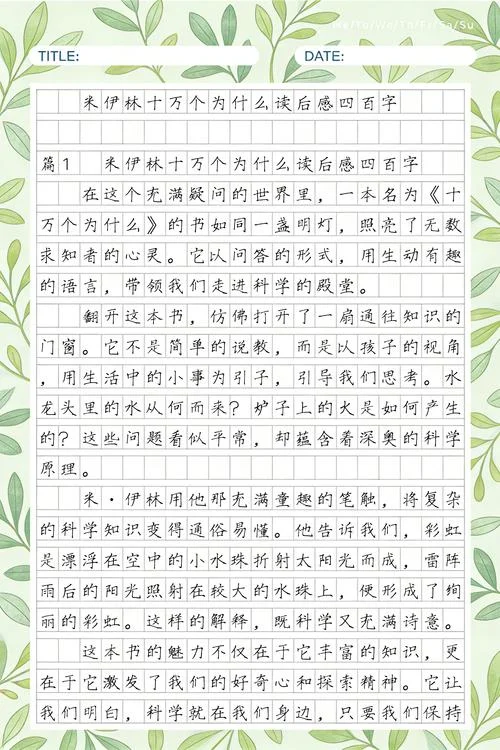 Mo/Tu/We/Th/Fr/Sa/Su
TITLE:
DATE:
米伊林十万个为什么读后感四百字
篇1 米伊林十万个为什么读后感四百字
在这个充满疑问的世界里，一本名为《十
万个为什么》的书如同一盏明灯，照亮了无数
求知者的心灵。它以问答的形式，用生动有趣
的语言，带领我们走进科学的殿堂。
翻开这本书，仿佛打开了一扇通往知识的
门窗。它不是简单的说教，而是以孩子的视角
，用生活中的小事为引子，引导我们思考。水
龙头里的水从何而来？炉子上的火是如何产生
的？这些问题看似平常，却蕴含着深奥的科学
原理。
米·伊林用他那充满童趣的笔触，将复杂
的科学知识变得通俗易懂。他告诉我们，彩虹
是漂浮在空中的小水珠折射太阳光而成，雷阵
雨后的阳光照射在较大的水珠上，便形成了绚
丽的彩虹。这样的解释，既科学又充满诗意。
这本书的魅力不仅在于它丰富的知识，更
在于它激发了我们的好奇心和探索精神。它让
我们明白，科学就在我们身边，只要我们保持